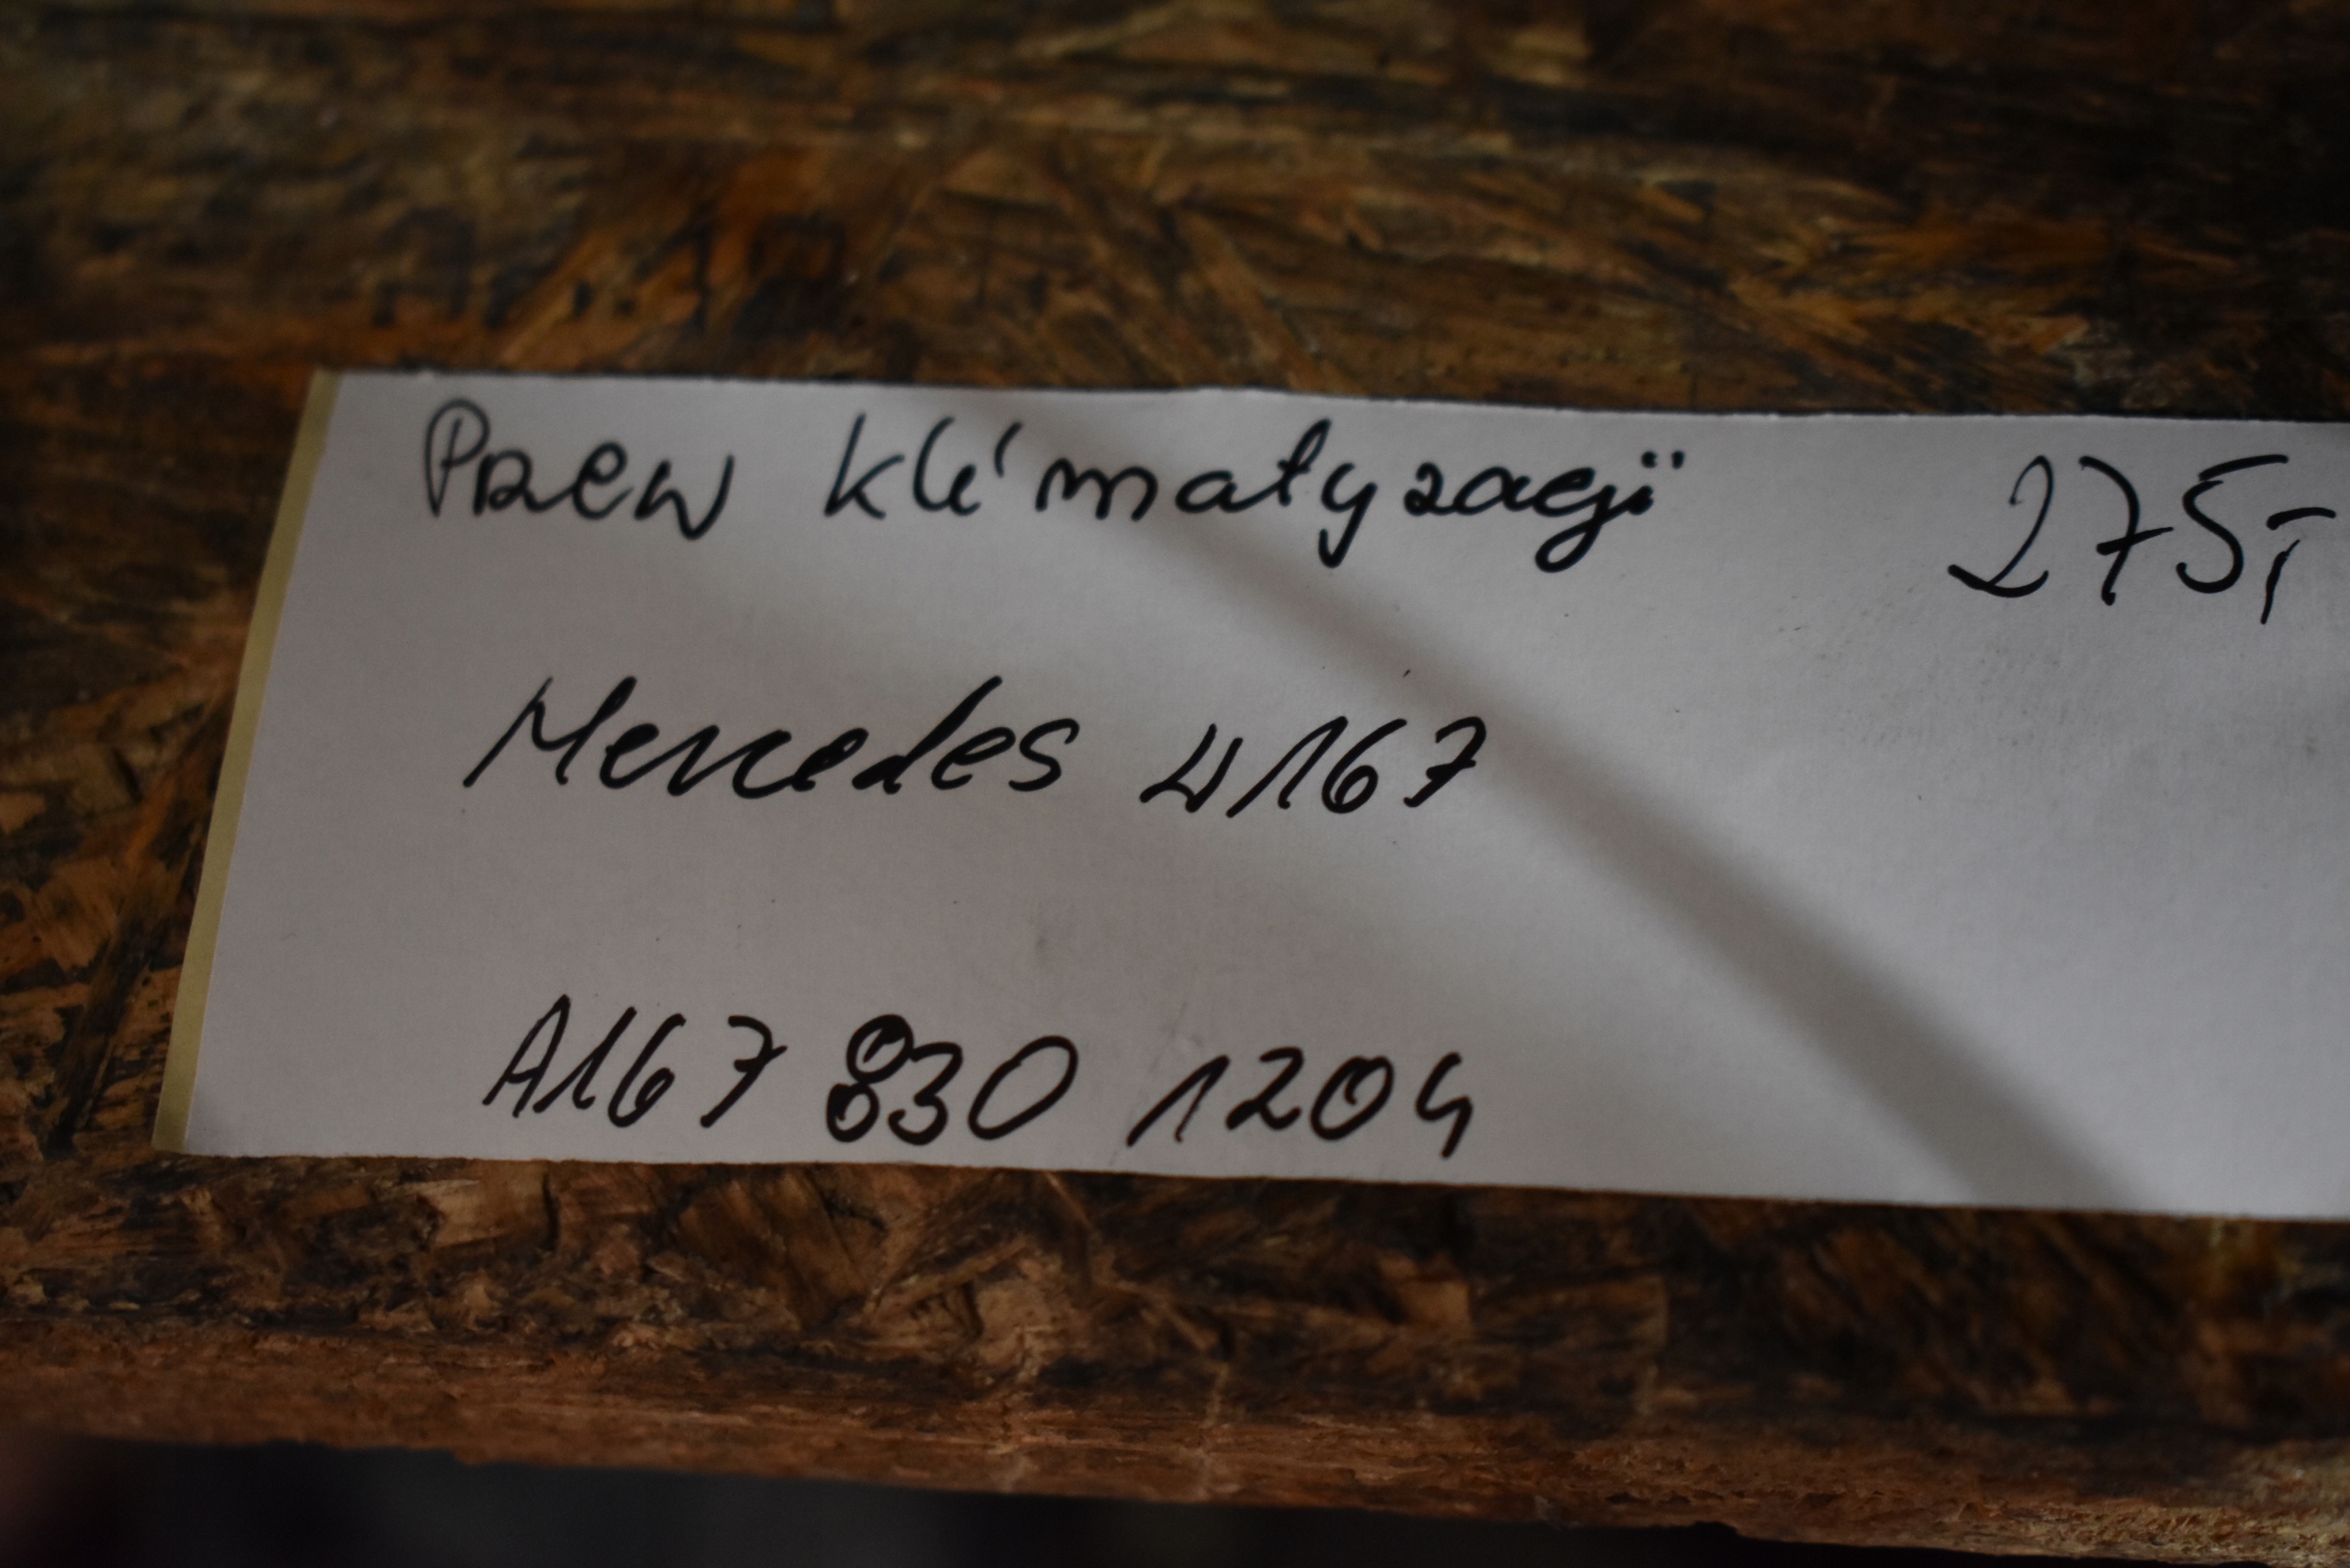 Przew klimatyzacji 275,-
Mercedes W167
A167 830 1204